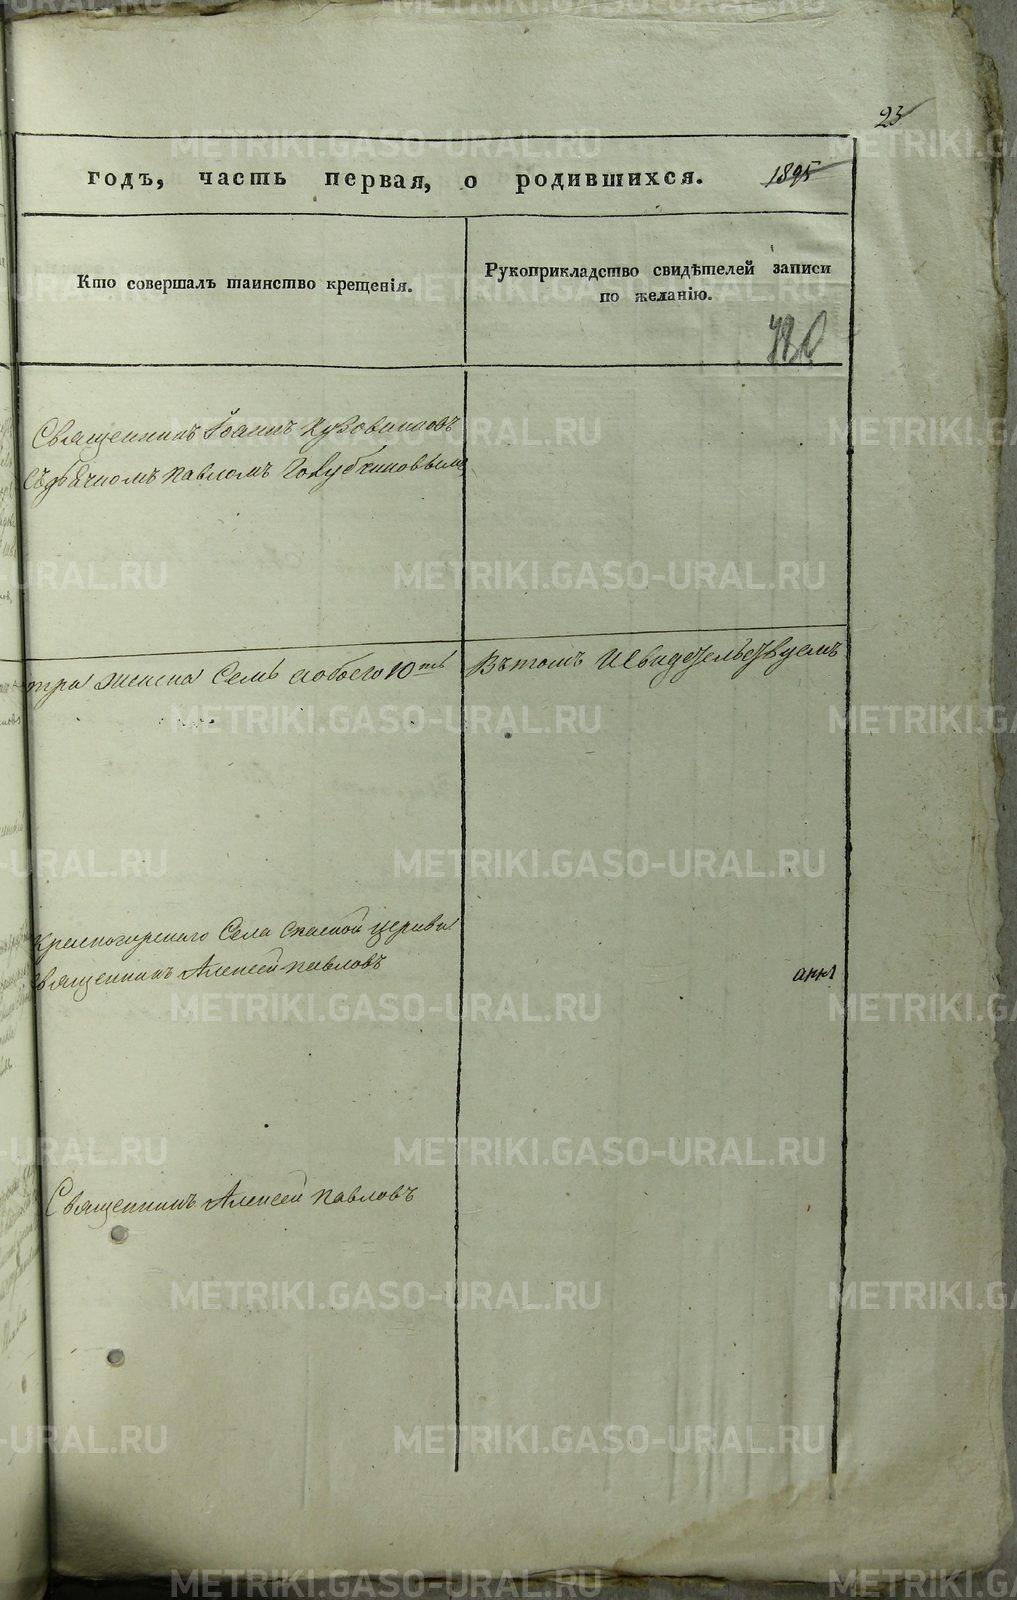 23
годъ, часть первая, о родившихся. 1895
Кто совершалъ таинство крещенія.
Рукоприкладство свидѣтелей записи
по желанію.
Священникъ Іоаннъ Кузовниковъ
Съ дьячкомъ Павломъ Голубчиковымъ
три женска Семь а обоего 10ть
Въ томъ и Свидетельствуемъ
Красногорскаго Села Спаской церкви
Священникъ Алексей Павловъ
Священникъ Алексей Павловъ
METRIKI.GASO-URAL.RU